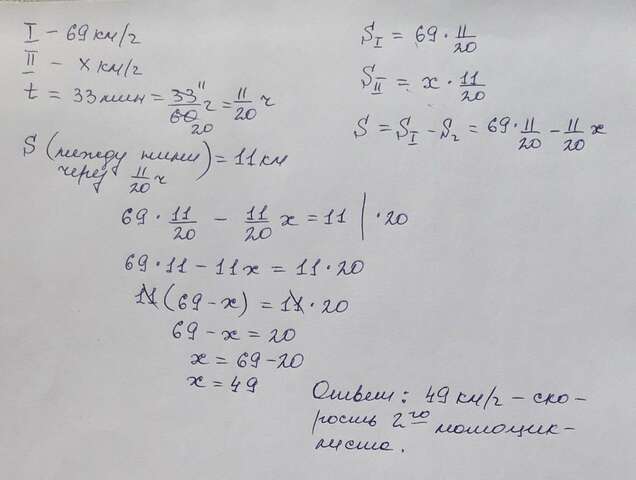 I - 69 км/г
II - x км/г
t = 33 мин = 33/60 г = 11/20 ч
11
20
S (между ними) = 11 км
через 11/20 ч
S_I = 69 · 11/20
S_II = x · 11/20
S = S_I - S_2 = 69 · 11/20 - 11/20 x
69 · 11/20 - 11/20 x = 11 | · 20
69 · 11 - 11x = 11 · 20
11(69 - x) = 11 · 20
69 - x = 20
x = 69 - 20
x = 49
Ответ: 49 км/г - ско-
рость 2го мотоцик-
листа.